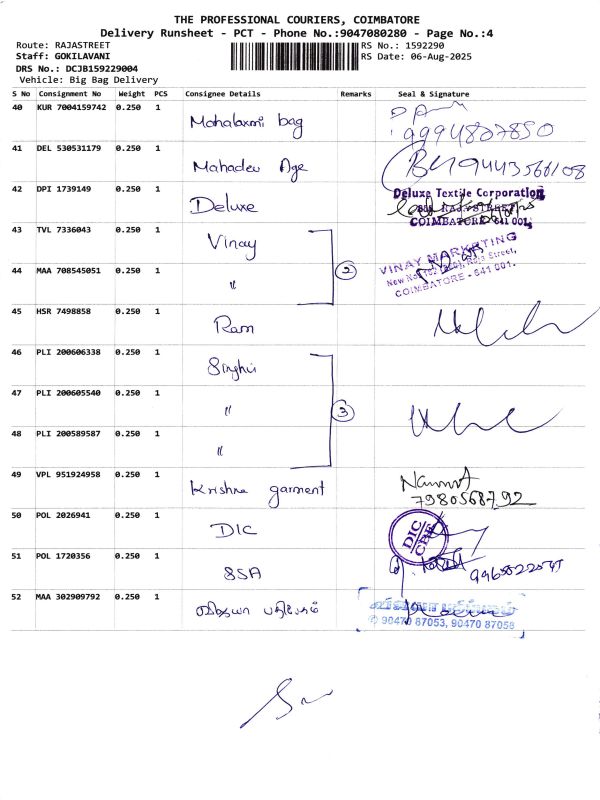 THE PROFESSIONAL COURIERS, COIMBATORE
Delivery Runsheet - PCT - Phone No.:9047080280 - Page No.:4
Route: RAJASTREET
RS No.: 1592290
Staff: GOKILAVANI
RS Date: 06-Aug-2025
DRS No.: DCJB159229004
Vehicle: Big Bag Delivery
S No Consignment No Weight PCS Consignee Details Remarks Seal & Signature
40 KUR 7004159742 0.250 1 Mahalaxmi bag
9994807850
41 DEL 530531179 0.250 1 Mahadev Age 9443566108
42 DPI 1739149 0.250 1 Deluxe
Deluxe Textile Corporation
COIMBATORE-641 001.
43 TVL 7336043 0.250 1 Vinay
VINAY MARKETING
44 MAA 708545051 0.250 1 〃 2
Street,
COIMBATORE - 641 001.
45 HSR 7498858 0.250 1 Ram
46 PLI 200606338 0.250 1 Singhvi
47 PLI 200605540 0.250 1 〃 3
48 PLI 200589587 0.250 1 〃
49 VPL 951924958 0.250 1 Krishna garment
7980568792
50 POL 2026941 0.250 1 DIC
DIC
CBE
51 POL 1720356 0.250 1 SSA
52 MAA 302909792 0.250 1 விஜயா பதிப்பகம்
விஜயா பதிப்பகம்
✆ 90470 87053, 90470 87058